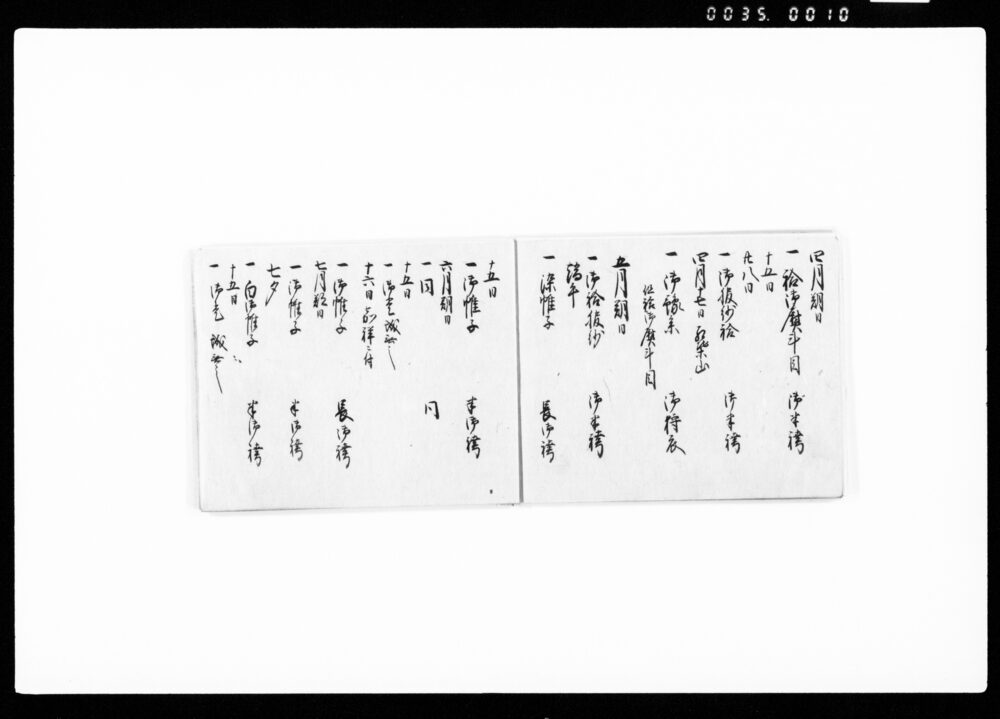 0035. 0010
四月朔日
一 袷御熨斗目 御半袴
十五日
廿八日
一 御服紗袷 御半袴
四月十七日 紅葉山
一 御豫参 御狩衣
御熨斗目
五月朔日
一 御袷服紗 御半袴
端午
一 染帷子 長御袴
十五日
一 御帷子 半御袴
六月朔日
一 同 同
十五日
一 御
十六日 嘉祥ニ付
一 御帷子 長御袴
七月朔日
一 御帷子 半御袴
七夕
一 白御帷子 半御袴
十五日
一 御